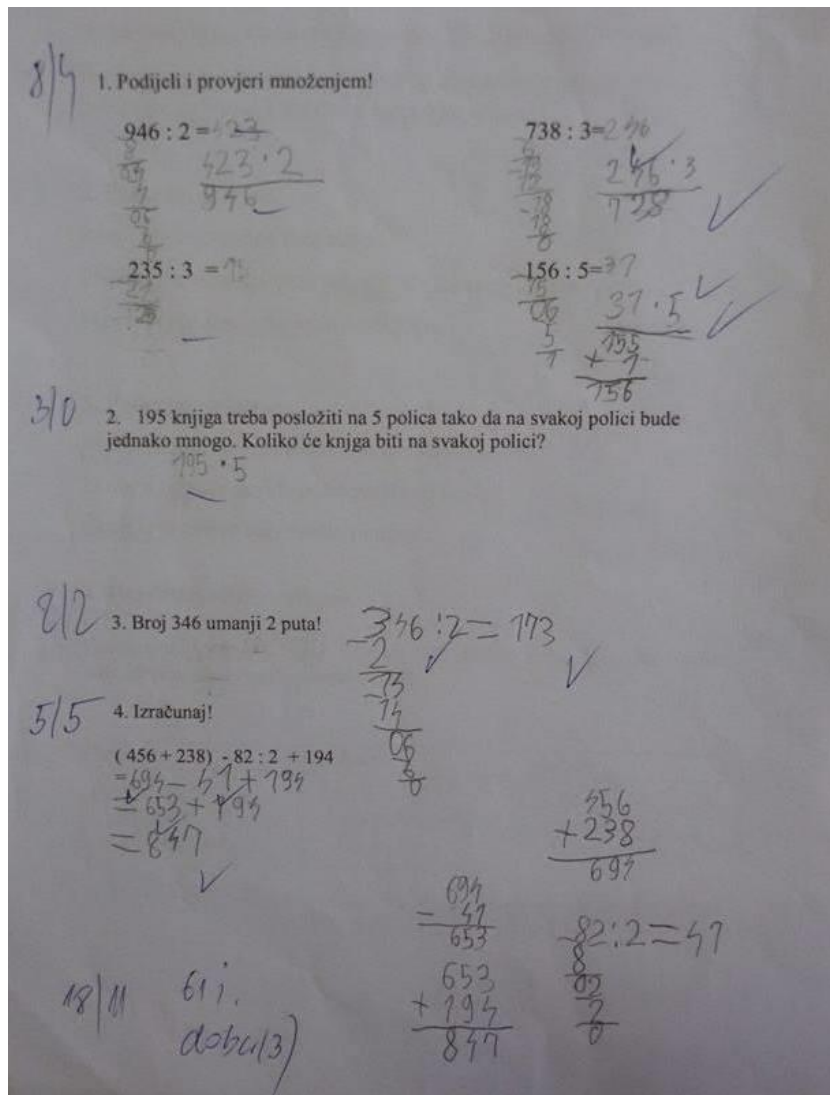 8/4 1. Podijeli i provjeri množenjem!
946 : 2 = 423
8
423 · 2
946
738 : 3=246
246 · 3
738
18
18
0
235 : 3 =
156 : 5=31
15
06
5
1
31 · 5
155
+ 1
156
3/0 2. 195 knjiga treba posložiti na 5 polica tako da na svakoj polici bude
jednako mnogo. Koliko će knjga biti na svakoj polici?
195 · 5
2/2 3. Broj 346 umanji 2 puta!
346 : 2 = 173
- 2
- 13
14
06
6
0
5/5 4. Izračunaj!
( 456 + 238) - 82 : 2 + 194
=694 - 41 + 194
= 653 + 194
= 847
456
+ 238
694
694
- 41
653
82 : 2 = 41
8
02
2
0
653
+ 194
847
18/11
dobar(3)